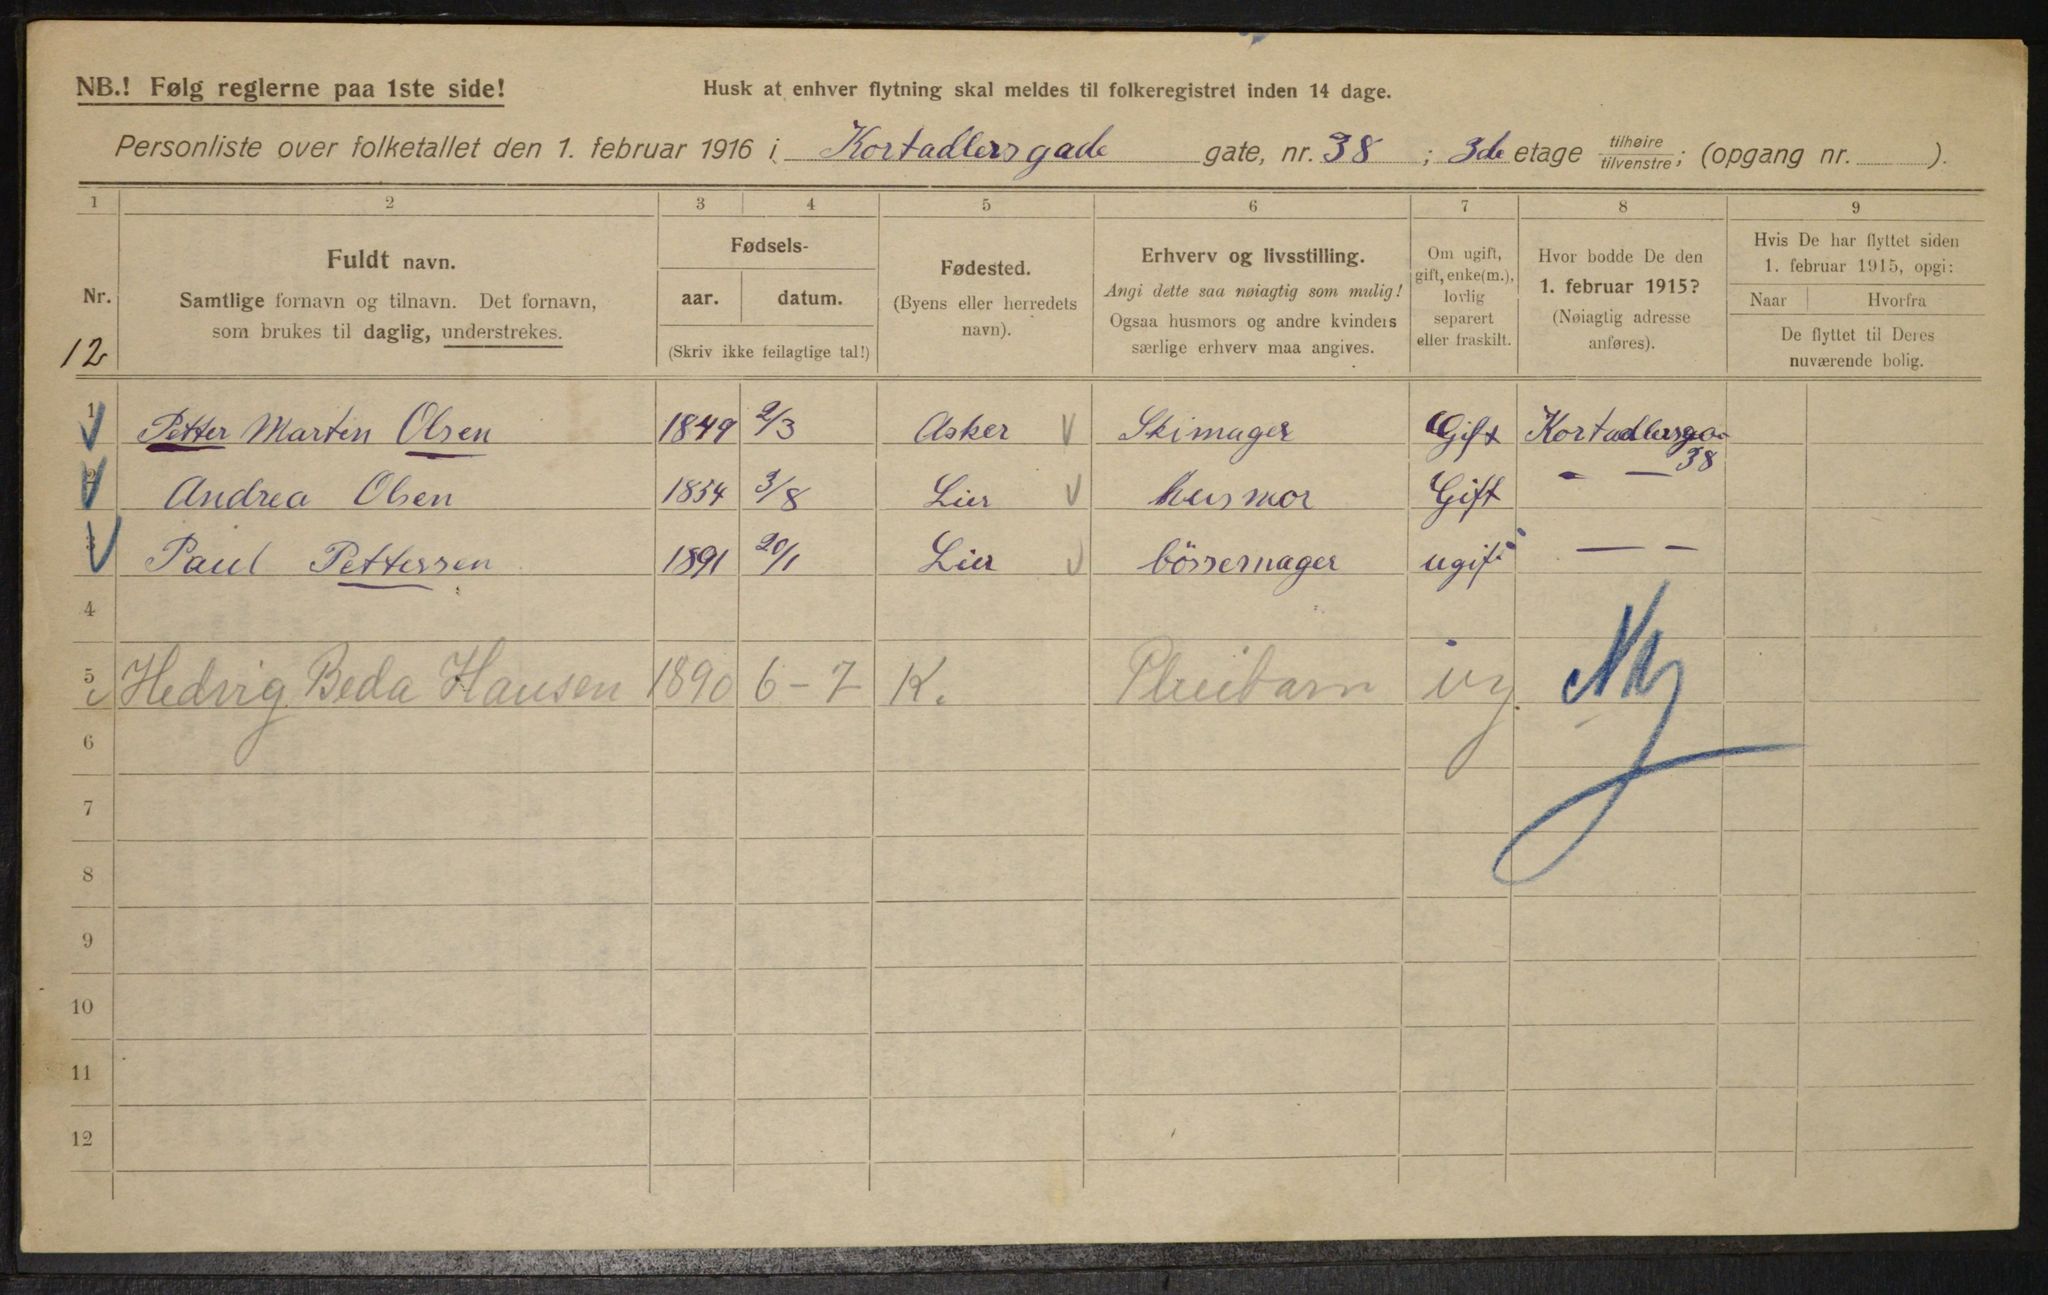 NB.! Følg reglerne paa 1ste side!
Husk at enhver flytning skal meldes til folkeregistret inden 14 dage.
Personliste over folketallet den 1. februar 1916 i Kortadlersgade gate, nr. 38 ; 3de etage tilhøire tilvenstre ; (opgang nr. ).
1 2 3 4 5 6 7 8 9
Nr.
12
Fuldt navn.
Samtlige fornavn og tilnavn. Det fornavn,
som brukes til daglig, understrekes.
Fødsels-
aar. datum.
(Skriv ikke feilagtige tal!)
Fødested.
(Byens eller herredets
navn).
Erhverv og livsstilling.
Angi dette saa nøiagtig som mulig!
Ogsaa husmors og andre kvinders
særlige erhverv maa angives.
Om ugift,
gift, enke(m.),
lovlig
separert
eller fraskilt.
Hvor bodde De den
1. februar 1915?
(Nøiagtig adresse
anføres).
Hvis De har flyttet siden
1. februar 1915, opgi:
Naar Hvorfra
De flyttet til Deres
nuværende bolig.
1 Petter Marten Olsen 1849 2/3 Asker V Skimager Gift Kortadlersga
38
2 Andrea Olsen 1854 3/8 Lier V husmor Gift - —
3 Paul Pettersen 1891 20/1 Lier V bössemager ugift — -
4
5 Hedvig Beda Hansen 1890 6-7 K. Pleibarn ug.
6
7
8
9
10
11
12